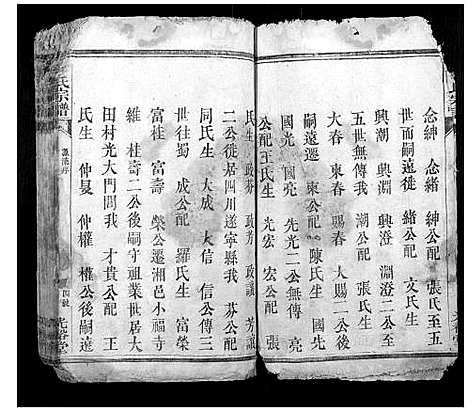 念紳 念緒 紳公配 張氏至五
世而嗣遠徙 緒公配 文氏生
興潮 興淵 興澄 淵澄二公至
五世無傳我 潮公配 張氏生
大春 東春 賜春 大賜二公後
嗣遠遷 東公配 陳氏生 國先
國光 國亮 先光二公無傳 亮
公配王氏生 光宏 宏公配 張
氏生 政芬 政芳 政議 芳議
二公徙居四川遂寧縣我 芬公配
同氏生 大成 大信 信公傳三
世往蜀 成公配 羅氏生 富榮
富桂 富壽 榮公遷湘邑小福寺
維 桂壽二公後嗣守祖業世居大
田村光大門閭我 才貴公配 王
氏生 仲夏 仲權 權公後嗣遠
氏宗譜
光裕堂